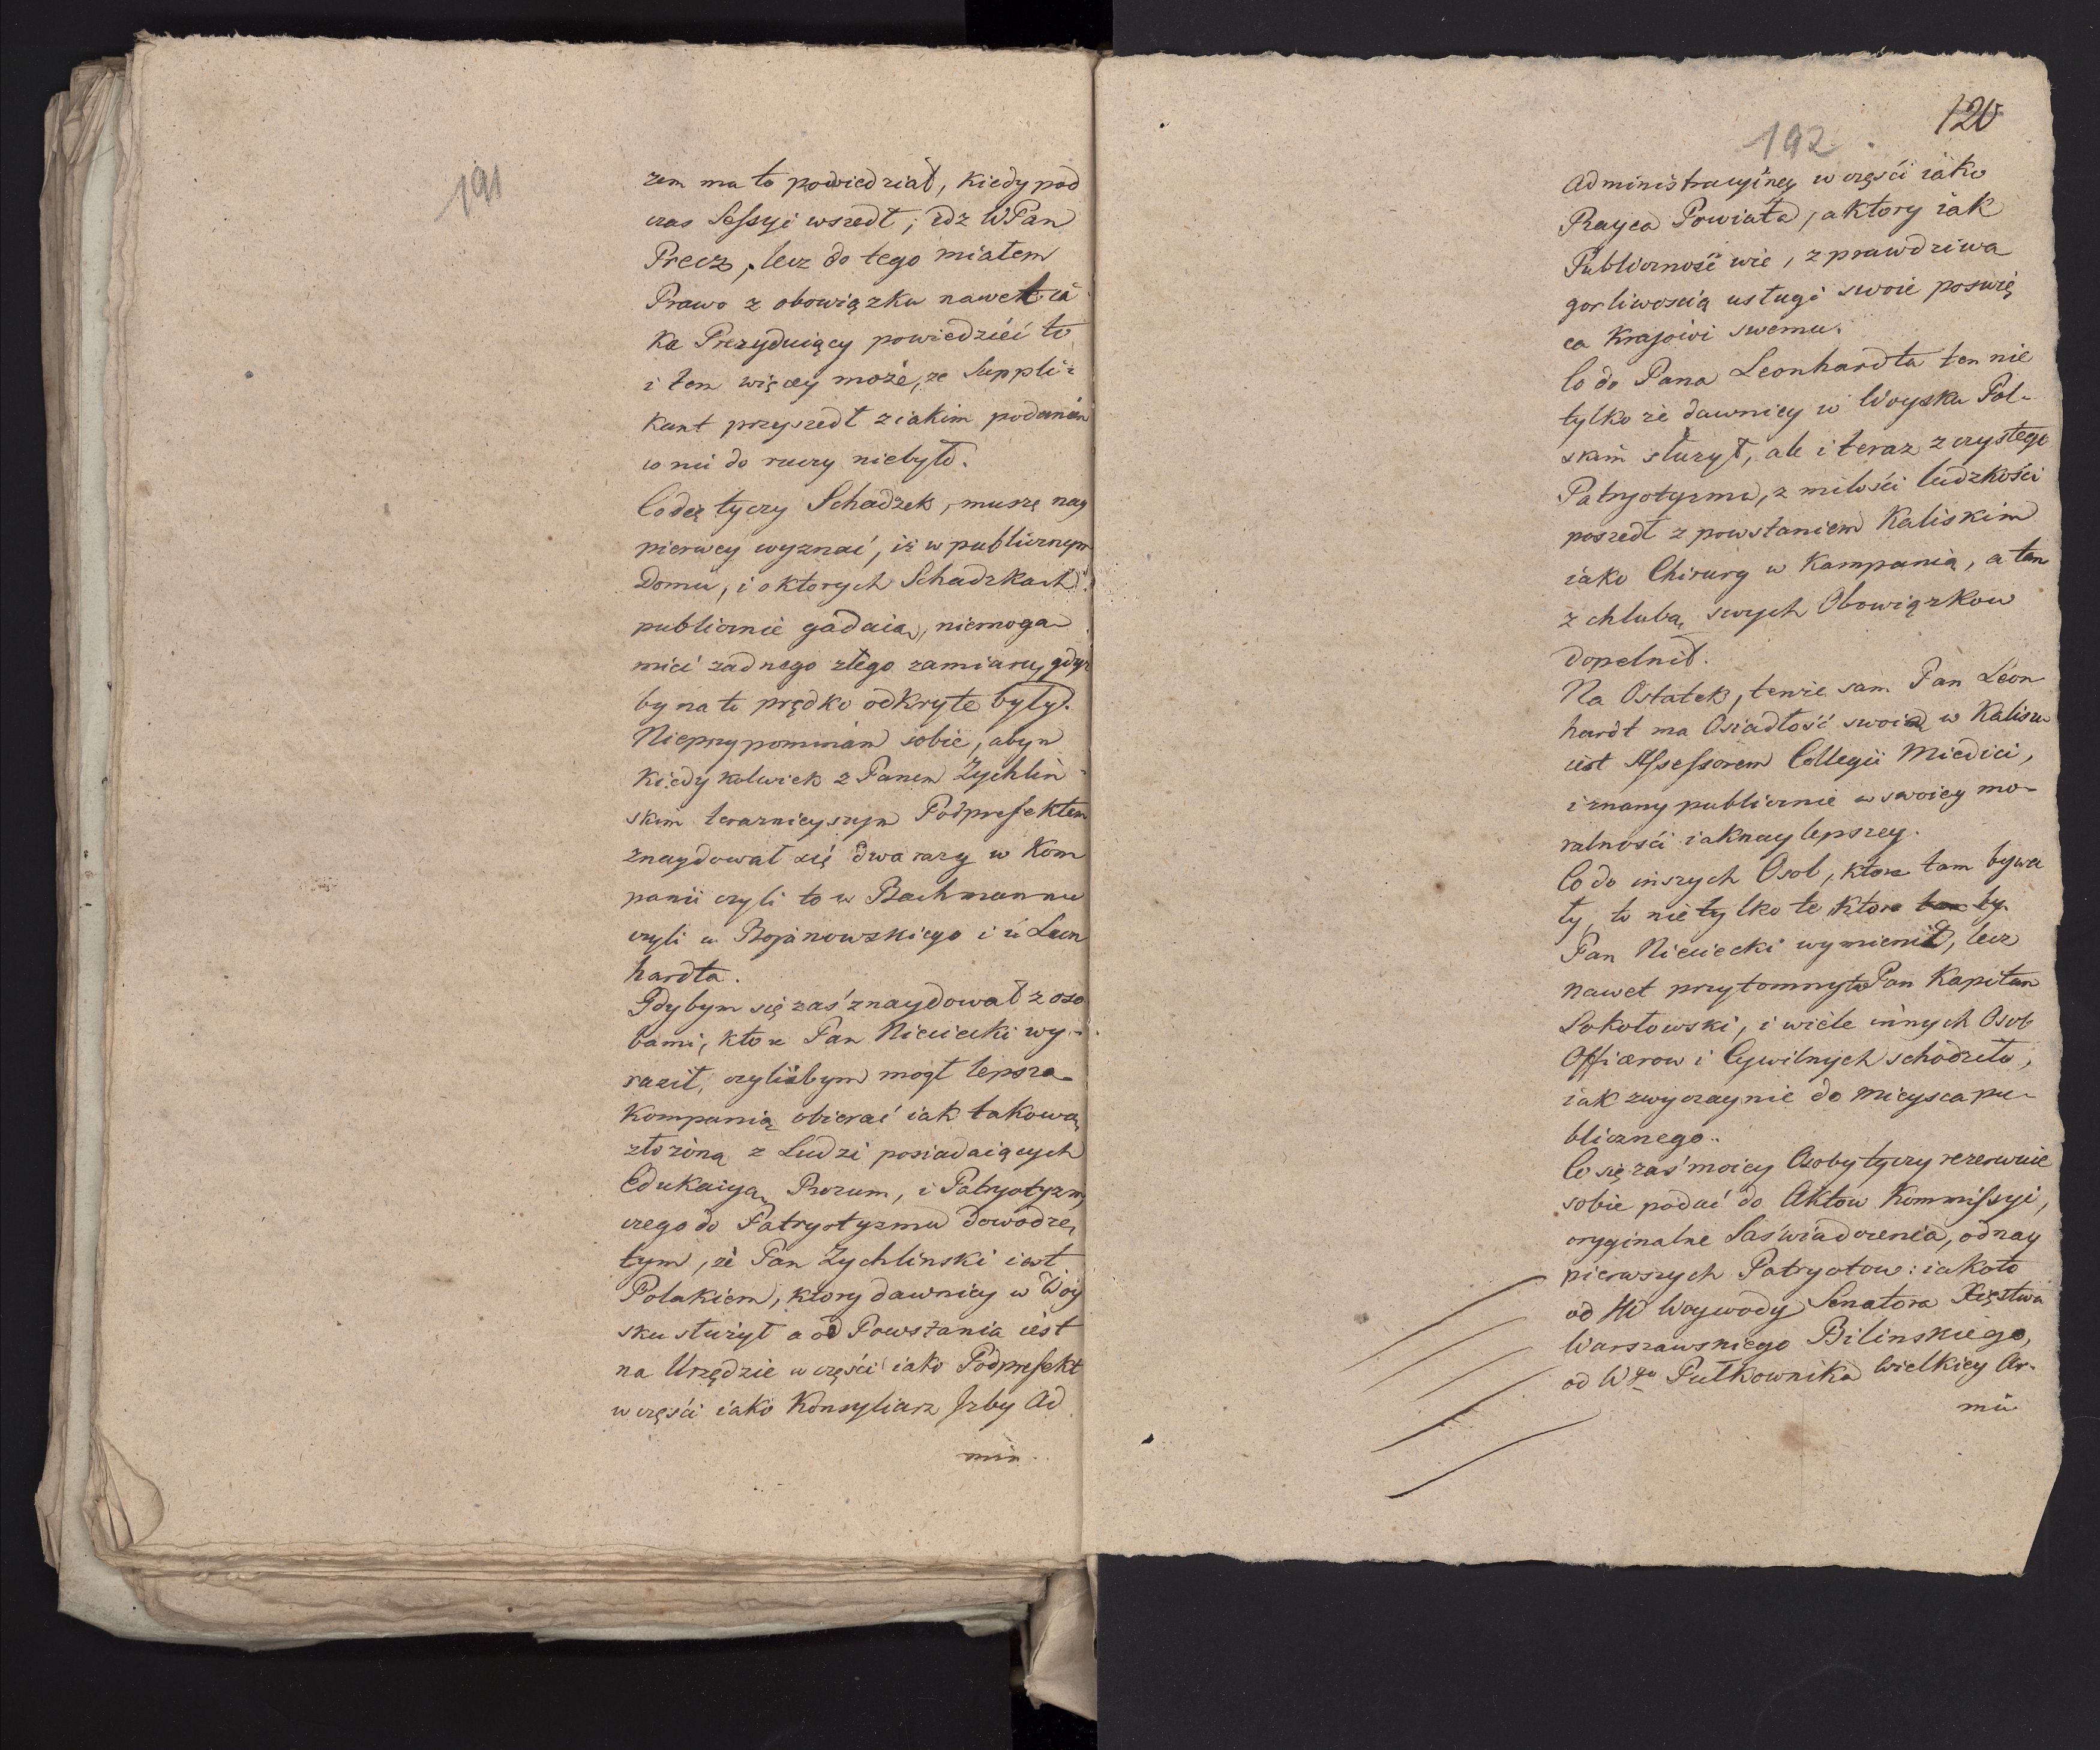 191
zem ma to powiedział, kiedy pod
czas Sessyi wszedł; idz WPan
Precz, lecz do tego miałem
Prawo z obowiązku nawet ia
ko Prezyduiący powiedzieć to
i tem więcey może, ze Suppli-
kant przyszedł z iakim podaniem
co mi do rzeczy niebyło.
Co się tyczy Schadzek, muszę nay
pierwey wyznać, iż w publicznym
Domu, i o ktorych Schadzkach
publicznie gadaią, niemogą
mieć zadnego złego zamiaru, gdyż
by na to prędko odkryte były.
Nieprzypominam sobie, abym
kiedykolwiek z Panem Zychlin-
skim teraznieyszym Podprefektem
znaydował się dwa razy w Kom
panii czyli to u Bachmanna
czyli u Bojanowskiego i u Leon
hardta.
Gdybym się zaś znaydował z oso
bami, ktore Pan Nieciecki wy-
raził, czyliżbym mogł lepszą
Kompanią obierać iak takową
złożoną z Ludzi posiadaiących
Edukacyą, Rozum, i Patryotyzm,
czego do Patryotyzmu dowodzę
tym, że Pan Zychlinski iest
Polakiem, ktory dawniey w Woy
sku służył a od Powstania iest
na Urzędzie w części iako Podprefekt
w części iako Konsyliarz Izby Ad
min
120
192
Administracyiney w części iako
Rayca Powiata, a ktory iak
Publiczność wie, z prawdziwą
gorliwoscią usługi swoie poswię
ca Krajowi swemu.
Co do Pana Leonhardta ten nie
tylko że dawniey w Woysku Pol-
skim służył, ale i teraz z czystego
Patryotyzmu, z miłości ludzkości
poszedł z powstaniem Kaliskim
iako Chirurg w Kampanią, a tam
z chlubą swych Obowiązkow
dopełnił.
Na Ostatek, tenże sam Pan Leon
hardt ma Osiadłość swoią w Kaliszu
iest Assessorem Collegii Miedici,
i znany publicznie w swoiey mo-
ralności iak naylepszey.
Co do inszych Osob, ktore tam bywa
ły, to nie tylko te ktore by
Pan Nieciecki wymienił, lecz
nawet przytomny Pan Kapitan
Sokołowski, i wiele innych Osob
Officerow i Cywilnych schodziło,
iak zwyczaynie do mieysca pu-
blicznego.
Co się zaś moiey Osoby tyczy rezerwuie
sobie podać do Aktow Kommissyi,
oryginalne Zaświadczenia, od nay
pierwszych Patryotow: iakoto
od JW Woywody Senatora Xięstwa
Warszawskiego Bilinskiego,
od Wgo Pułkownika Wielkiey Ar-
mii